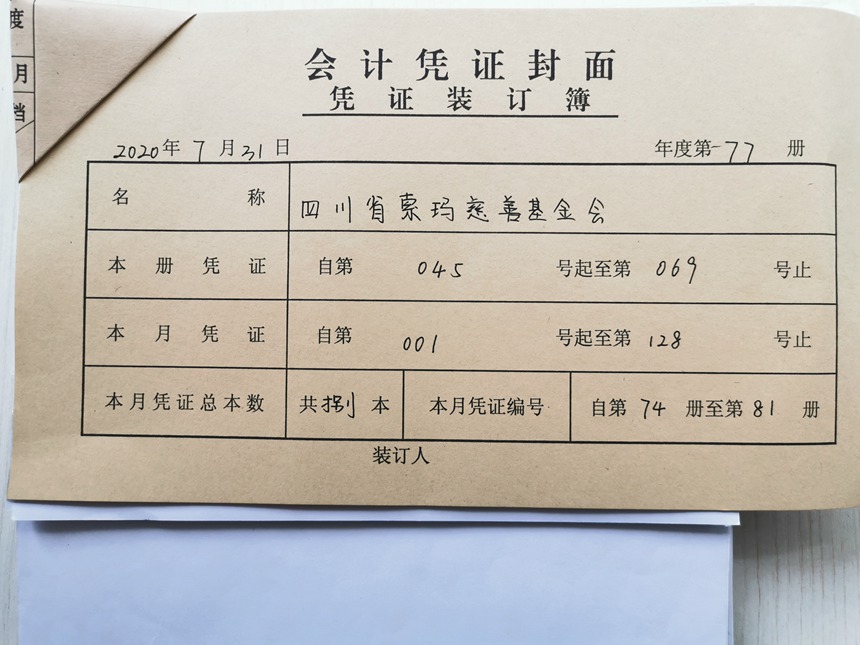 度
月
档
会计凭证封面
凭证装订簿
2020年7月31日 年度第-77 册
名称 四川省索玛慈善基金会
本册凭证 自第 045 号起至第 069 号止
本月凭证 自第 001 号起至第 128 号止
本月凭证总本数 共捌本 本月凭证编号 自第 74 册至第 81 册
装订人